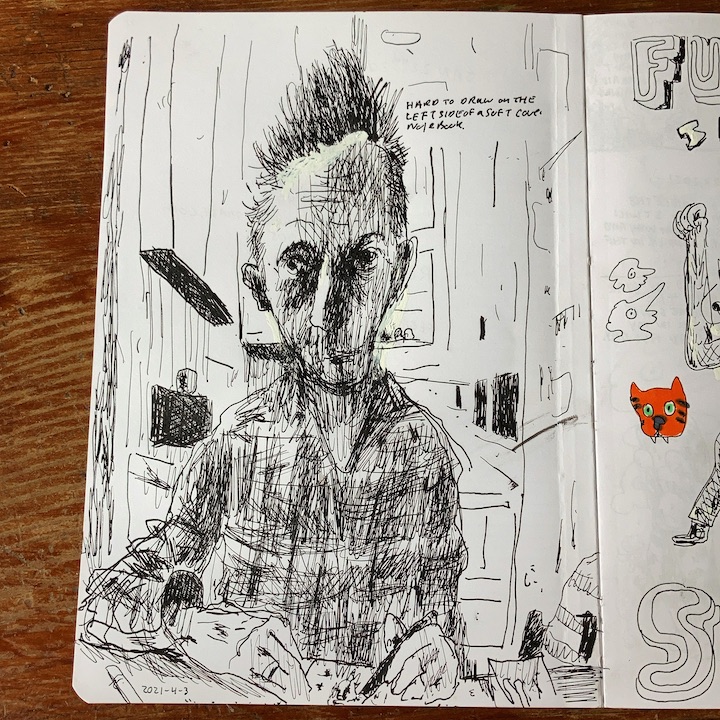 HARD TO DRAW ON THE
LEFT SIDE OF A SOFT COVE.
NOTEBOOK.
FU
I
S
2021-4-3